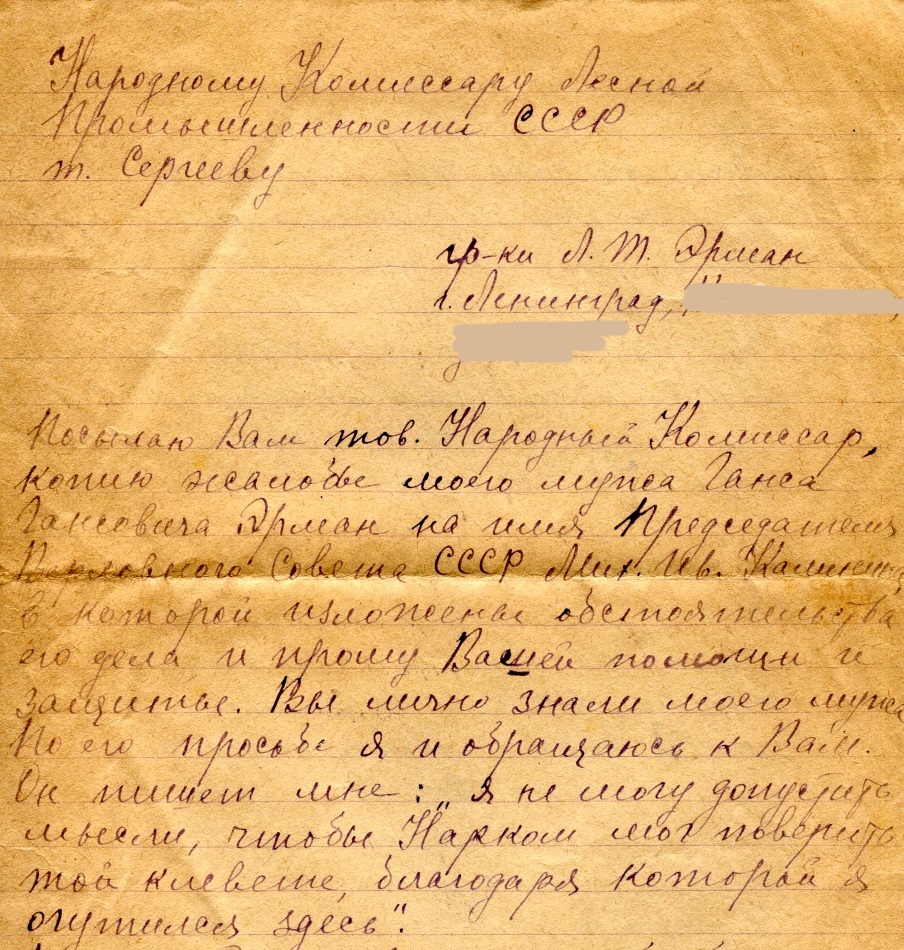 Народному Комиссару Лесной
Промышленности СССР
т. Сергееву
гр-ки Л. Т. Эрман
г. Ленинград,
Посылаю Вам тов. Народный Комиссар,
копию жалобы моего мужа Ганса
Гансовича Эрман на имя Председателя
Верховного Совета СССР Мих. Ив. Калинина,
в которой изложены обстоятельства
его дела, и прошу Вашей помощи и
защиты. Вы лично знали моего мужа
По его просьбе я и обращаюсь к Вам.
Он пишет мне: "я не могу допустить
мысли, чтобы Нарком мог поверить
той клевете, благодаря которой я
очутился здесь".